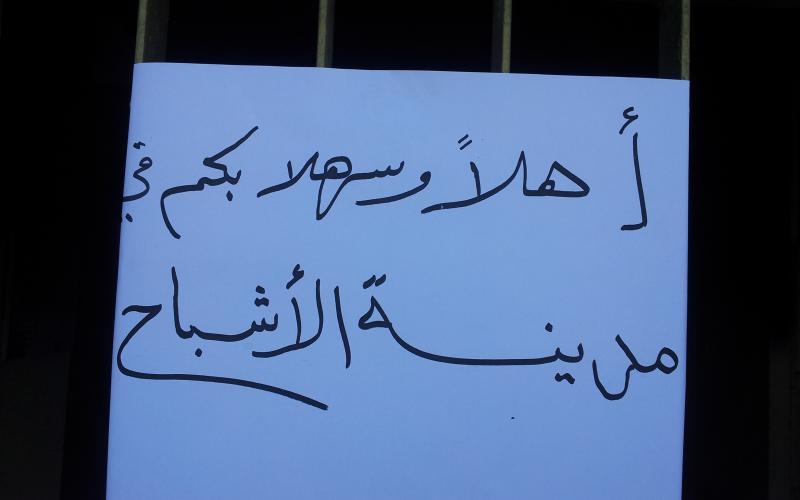 أهلاً وسهلا بكم في
مدينة الأشباح